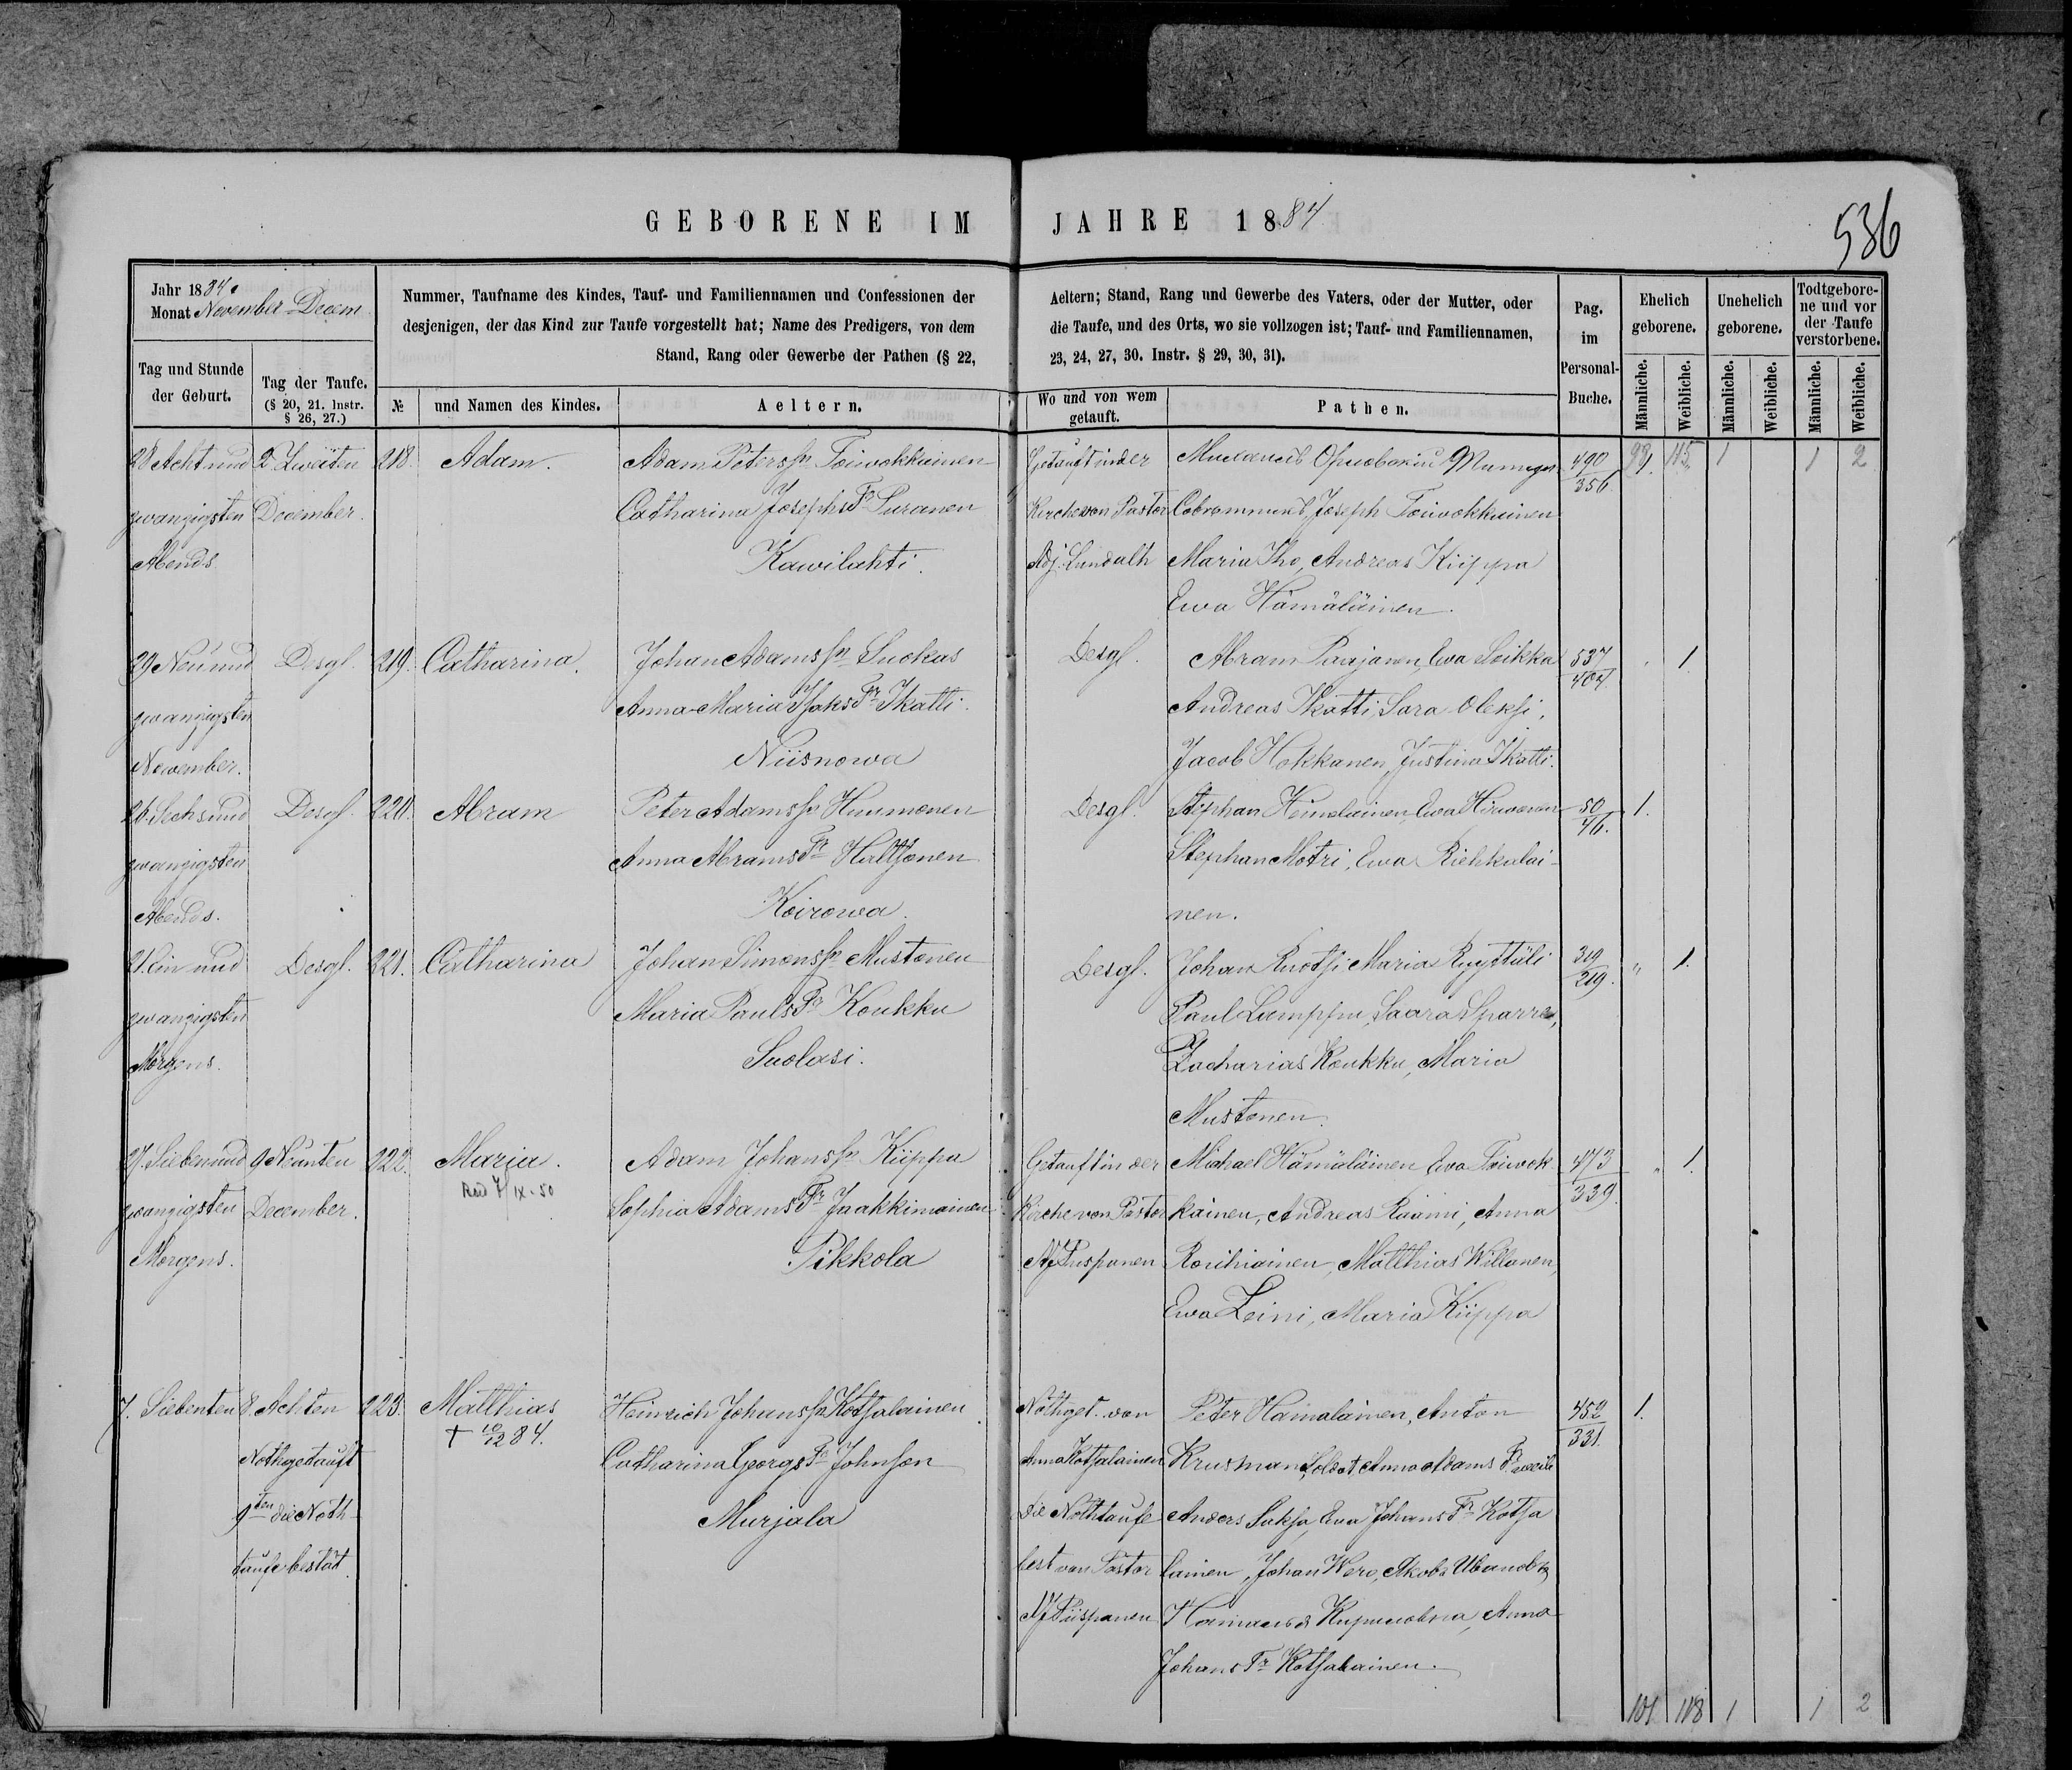 GEBORENE IM JAHRE 1884
536
Jahr 1884.
Monat November-Decem.
Nummer, Taufname des Kindes, Tauf- und Familiennamen und Confessionen der
desjenigen, der das Kind zur Taufe vorgestellt hat; Name des Predigers, von dem
Stand, Rang oder Gewerbe der Pathen (§ 22,
Aeltern; Stand, Rang und Gewerbe des Vaters, oder der Mutter, oder
die Taufe, und des Orts, wo sie vollzogen ist; Tauf- und Familiennamen,
23, 24, 27, 30. Instr. § 29, 30, 31).
Pag. im Personal-Buche.
Ehelich geborene.
Unehelich geborene.
Todtgeborene und vor der Taufe verstorbene.
Tag und Stunde der Geburt.
Tag der Taufe.
(§ 20, 21. Instr. § 26, 27.)
№
und Namen des Kindes.
Aeltern.
Wo und von wem getauft.
Pathen.
Männliche. Weibliche. Männliche. Weibliche. Männliche. Weibliche.
28 Acht und
zwanzigsten
Abends.
2 Zweiten
December.
218.
Adam.
Adam Peters sn Toiwokkainen
Catharina Josephs Tr Puranen
Kawilahti.
Getauft in der
Kirche von Pastor
Adj. Lundalh
Joseph Toiwokkainen
Maria Iho, Andreas Kiippa
Ewa Hämäläinen.
490
356.
99. 115 1 1 2
29 Neunund
zwanzigsten
November.
Desgl.
219.
Catharina.
Johan Adams sn Suokas
Anna-Maria Isaks Tr Ikatti.
Niisnowa
Desgl.
Abram Paajanen, Ewa Soikka
Andreas Ikatti, Sara Oleksi,
Jacob Hokkanen, Justina Ikatti.
537
404.
" 1
26. Sechsund
zwanzigsten
Abends.
Desgl.
220.
Abram
Peter Adams sn Hummonen
Anna Abrams Tr Haltsonen
Koirowa.
Desgl.
Stephan Heinolainen, Ewa Hirwonen
Stephan Motri, Ewa Riehkalai-
nen.
50
46.
1.
21. Ein und
zwanzigsten
Morgens.
Desgl.
221.
Catharina
Johan Simons sn Mustonen
Maria Pauls Tr Koukku
Suolasi.
Desgl.
Johan Ruotsi, Maria Ryyttüli
Paul Lumppu, Saara Sparre,
Zacharias Koukku, Maria
Mustonen.
319
219.
" 1.
27. Siebenund
zwanzigsten
Morgens.
9 Neunten
December.
222.
Maria.
7/IX-50
Adam Johans sn Kiippa
Sophia Adams Tr Jaakkimainen.
Pikkola
Getauft in der
Kirche von Pastor
Adj. Piispanen
Michael Hämäläinen, Ewa Toiwok
kainen, Andreas Räämi, Anna
Rouhiainen, Matthias Willanen,
Ewa Leini, Maria Kiippa
473
339.
" 1.
7. Siebenten
8. Achten
Nothgetauft
9ten die Noth-
taufe bestät.
223.
Matthias
† 10/12 84.
Heinrich Johans sn Kotsalainen
Catharina Georgs Tr Johnson
Murjala
Nothget. von
Anna Kotsalainen
die Nothtaufe
best von Pastor
Adj. Piispanen
Peter Hämäläinen, Anton
Krusman, Soldat, Anna Adams Tr
Anders Suksa, Ewa Johans Tr Kotsa
lainen, Johan Wero,
Кириловна, Anna
Johans Tr Kotsalainen.
452
331.
1.
101 118 1 1 2